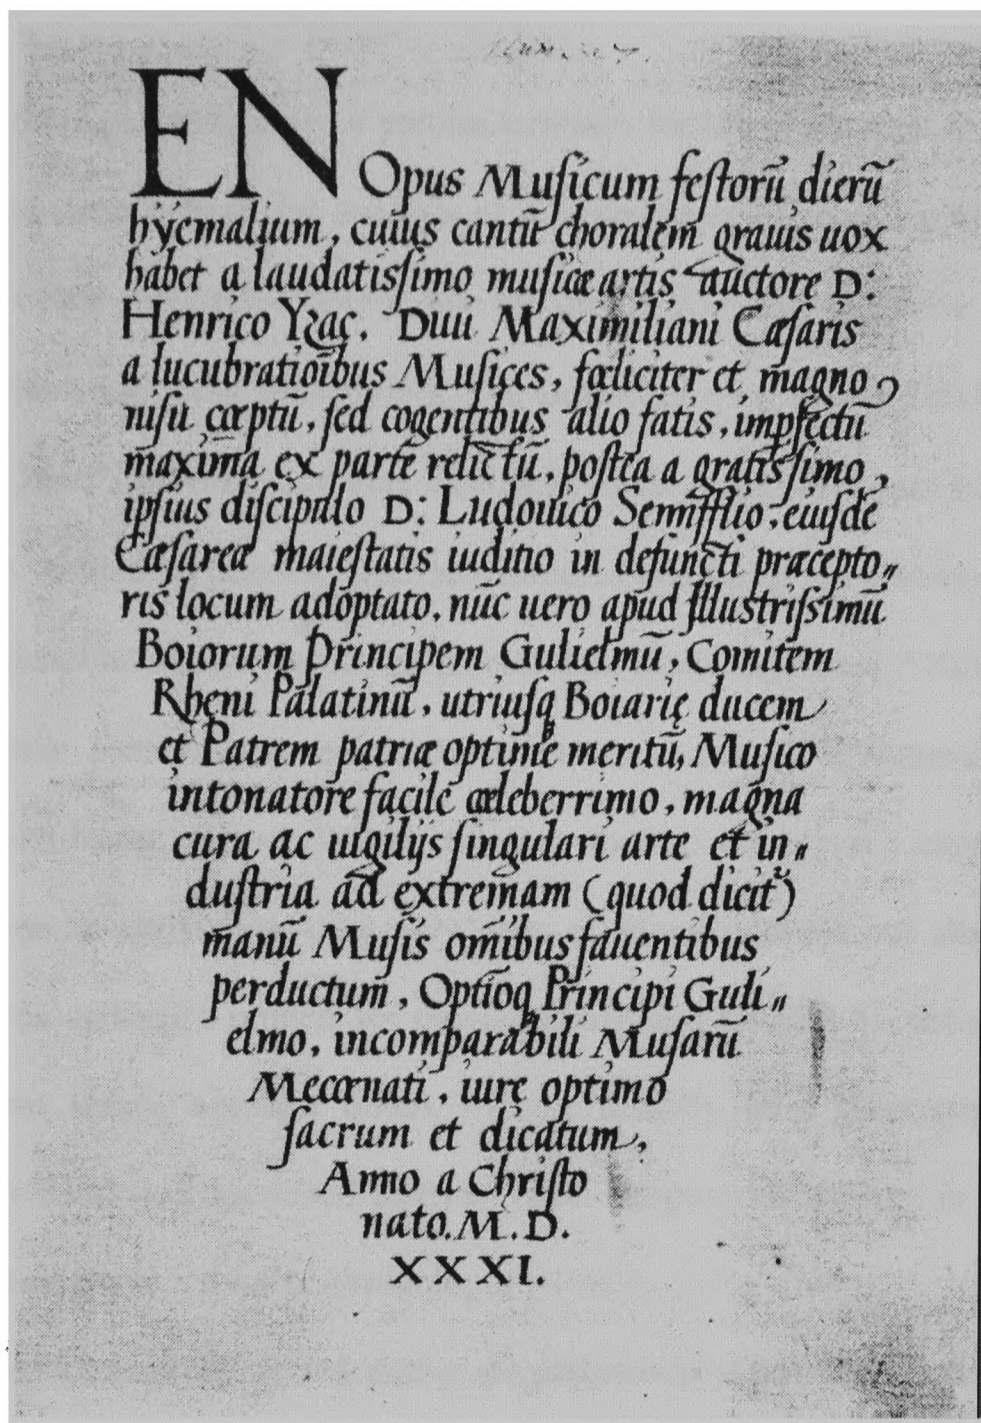 EN Opus Muſicum feſtorū dierū
hyemalium, cuius cantū choralem grauis uox
habet a laudatisſimo muſicæ artis auctore D:
Henrico Yzac, Diui Maximiliani Cæſaris
a lucubratiōibus Muſices, fœliciter et magno
niſu cœptū, ſed cogentibus alio fatis, imꝑfectū
maxima ex parte relictū, poſtea a gratisſimo
ipſius diſcipulo D: Ludouico Sennfflio, eiuſdē
Cæſareæ maieſtatis iuditio in defuncti præcepto〃
ris locum adoptato, nūc uero apud Illustriſsimū
Boiorum Principem Gulielmū, Comitem
Rheni Palatinū, utriuſꝗ Boiarię ducem
et Patrem patriæ optime meritū, Muſico
intonatore facile celeberrimo, magna
cura ac uigilijs ſingulari arte et in〃
duſtria ad extremam (quod dicit᷑)
manū Muſis om̄ibus fauentibus
perductum, Optīoꝗ Principi Guli〃
elmo, incomparabili Muſarū
Mecœnati, iure optimo
ſacrum et dicatum,
Anno a Chriſto
nato. M. D.
XXXI.